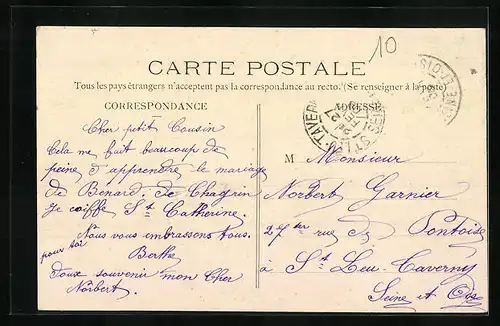 10
CARTE POSTALE
Tous les pays étrangers n'acceptent pas la correspondance au recto. (Se renseigner à la poste)
CORRESPONDANCE
ADRESSE
Cher petit Cousin
Cela me fait beaucoup de
peine d'apprendre le mariage
de Benard. de Chagrin
je coiffe St Catherine.
Nous vous embrassons tous.
pour toi
Berthe
doux souvenir mon Cher
Norbert.
M Monsieur
Norbert Garnier
27 ter rue de Pontoise
à St Leu-Taverny
Seine et Oise
ST LEU-TAVERNY